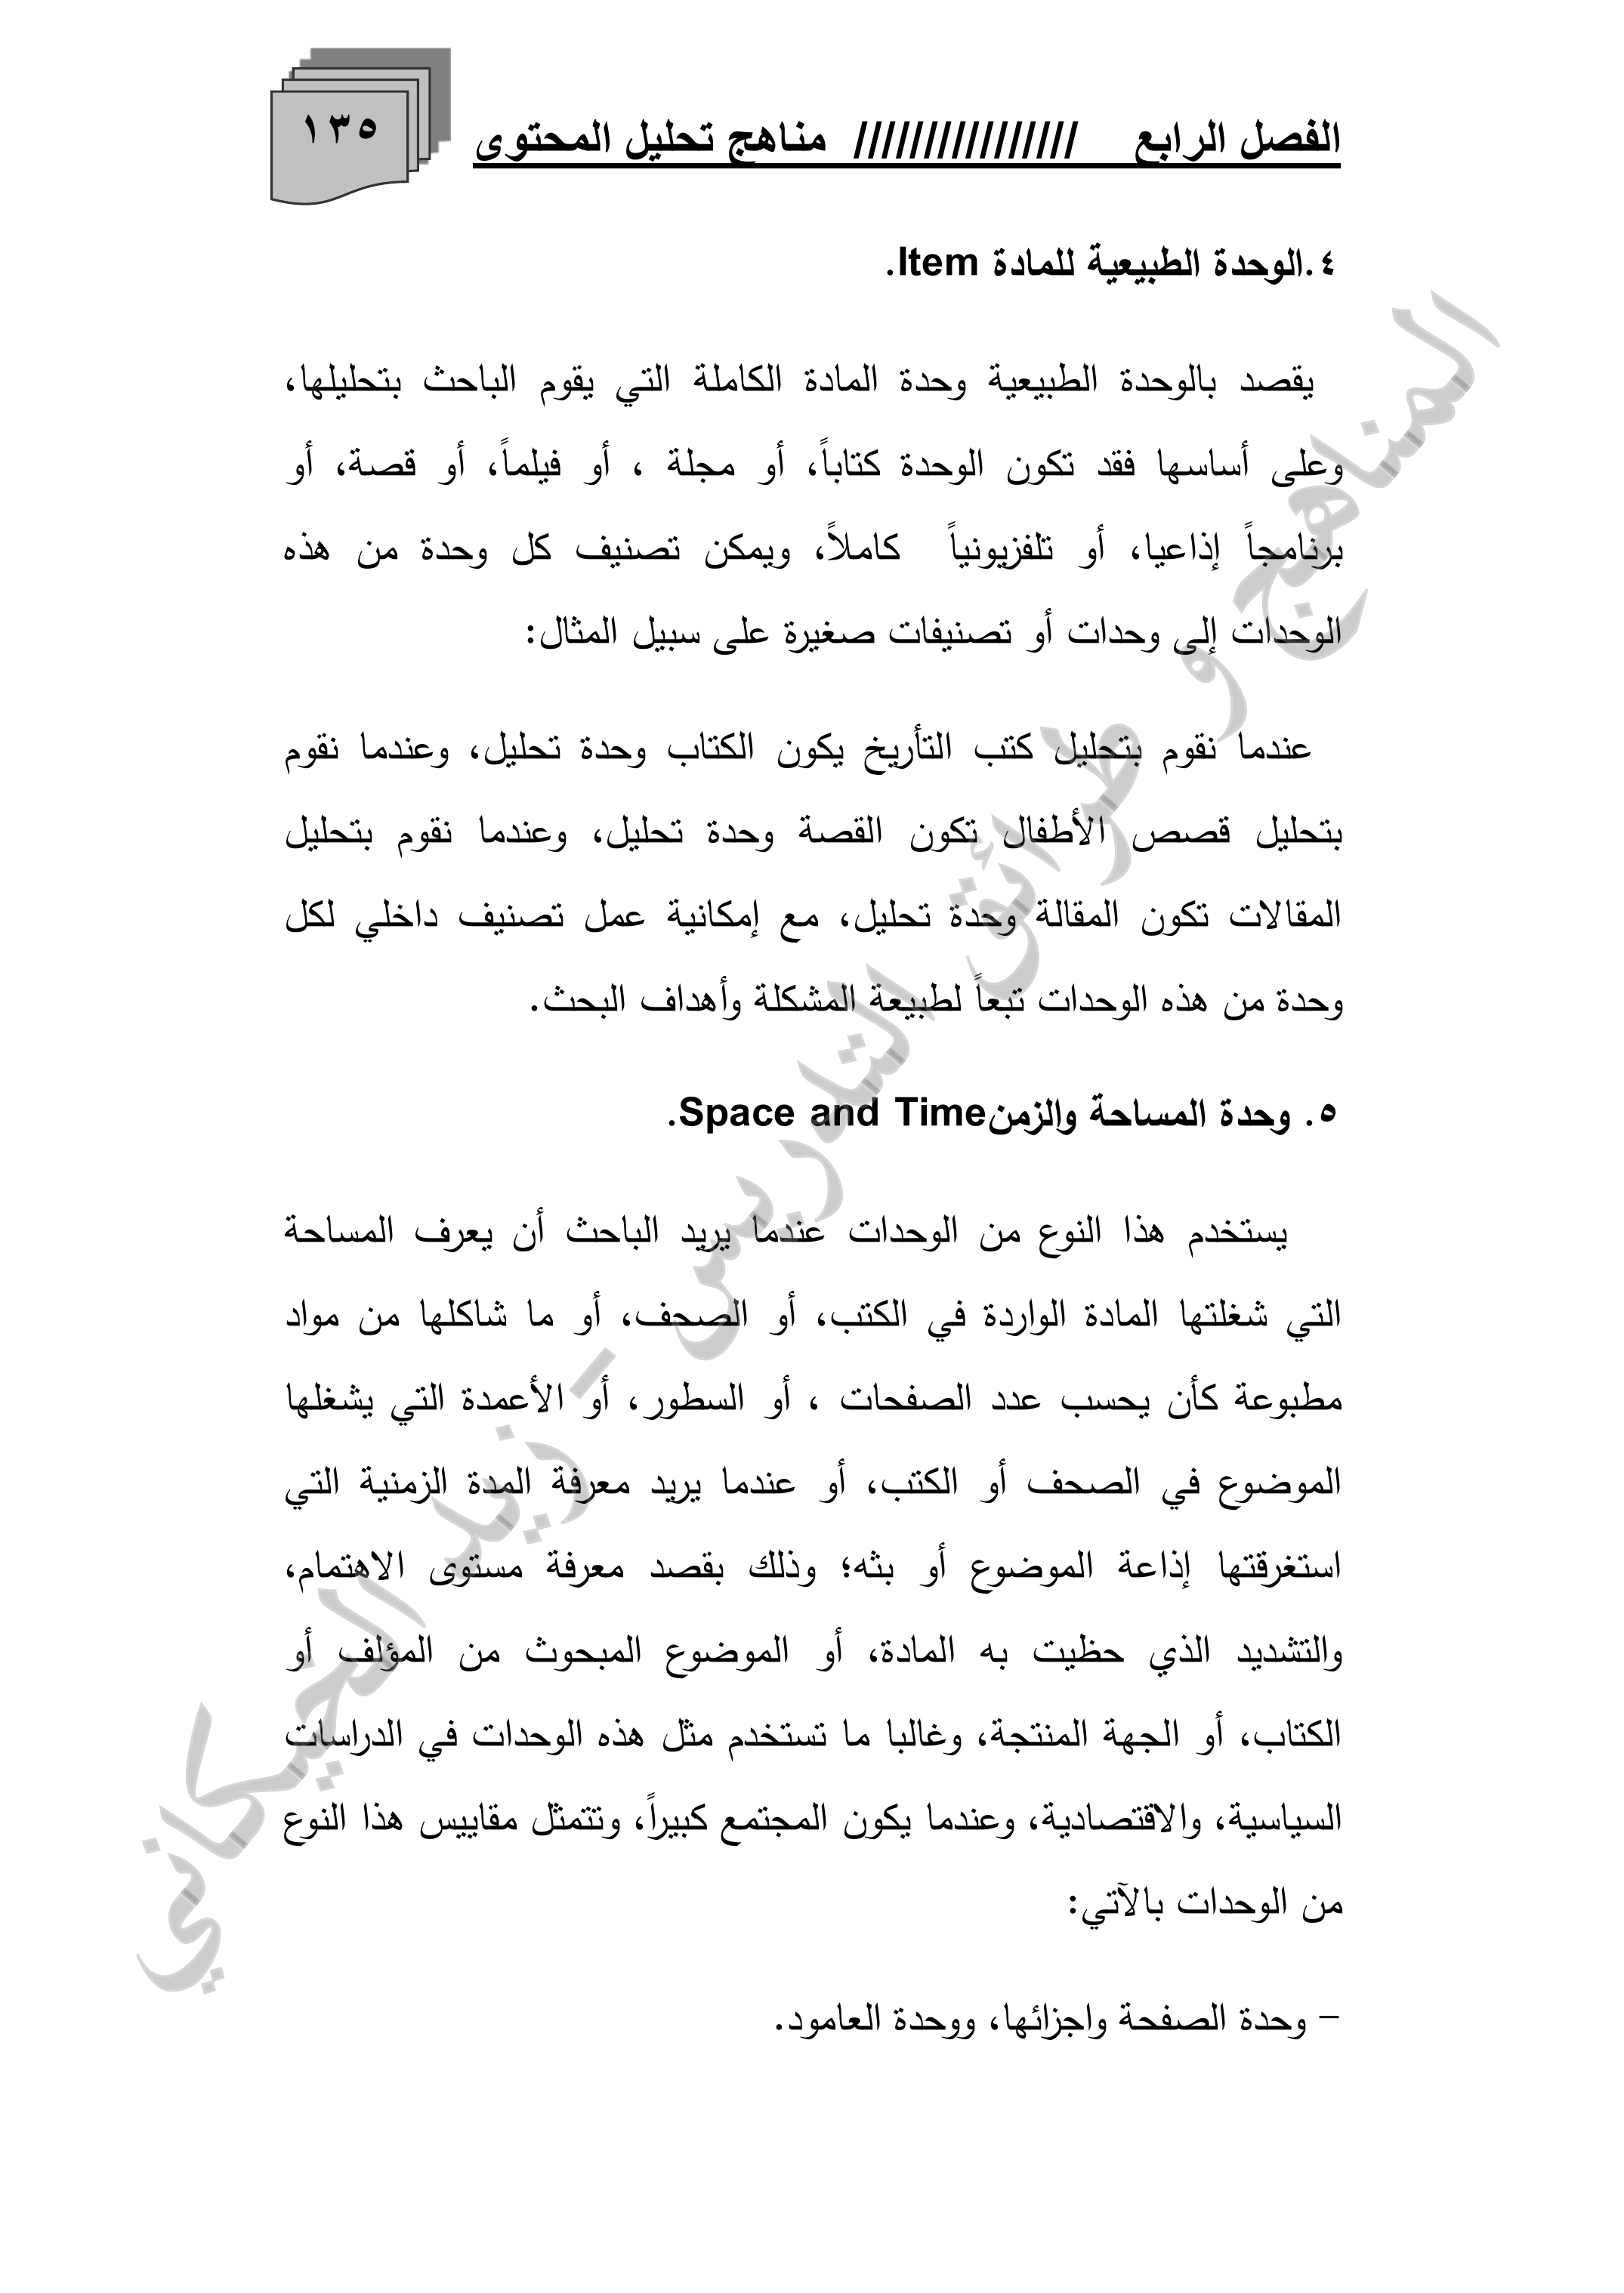 الفصل الرابع //////////////// مناهج تحليل المحتوى
١٣٥
٤.الوحدة الطبيعية للمادة Item.
يقصد بالوحدة الطبيعية وحدة المادة الكاملة التي يقوم الباحث بتحليلها،
وعلى أساسها فقد تكون الوحدة كتاباً، أو مجلة ، أو فيلماً، أو قصة، أو
برنامجاً إذاعيا، أو تلفزيونياً كاملاً، ويمكن تصنيف كل وحدة من هذه
الوحدات إلى وحدات أو تصنيفات صغيرة على سبيل المثال:
عندما نقوم بتحليل كتب التأريخ يكون الكتاب وحدة تحليل، وعندما نقوم
بتحليل قصص الأطفال تكون القصة وحدة تحليل، وعندما نقوم بتحليل
المقالات تكون المقالة وحدة تحليل، مع إمكانية عمل تصنيف داخلي لكل
وحدة من هذه الوحدات تبعاً لطبيعة المشكلة وأهداف البحث.
٥. وحدة المساحة والزمنSpace and Time.
يستخدم هذا النوع من الوحدات عندما يريد الباحث أن يعرف المساحة
التي شغلتها المادة الواردة في الكتب، أو الصحف، أو ما شاكلها من مواد
مطبوعة كأن يحسب عدد الصفحات ، أو السطور، أو الأعمدة التي يشغلها
الموضوع في الصحف أو الكتب، أو عندما يريد معرفة المدة الزمنية التي
استغرقتها إذاعة الموضوع أو بثه؛ وذلك بقصد معرفة مستوى الاهتمام،
والتشديد الذي حظيت به المادة، أو الموضوع المبحوث من المؤلف أو
الكتاب، أو الجهة المنتجة، وغالبا ما تستخدم مثل هذه الوحدات في الدراسات
السياسية، والاقتصادية، وعندما يكون المجتمع كبيراً، وتتمثل مقاييس هذا النوع
من الوحدات بالآتي:
– وحدة الصفحة واجزائها، ووحدة العامود.
المناهج و طرائق التدريس - زيد الخيكاني